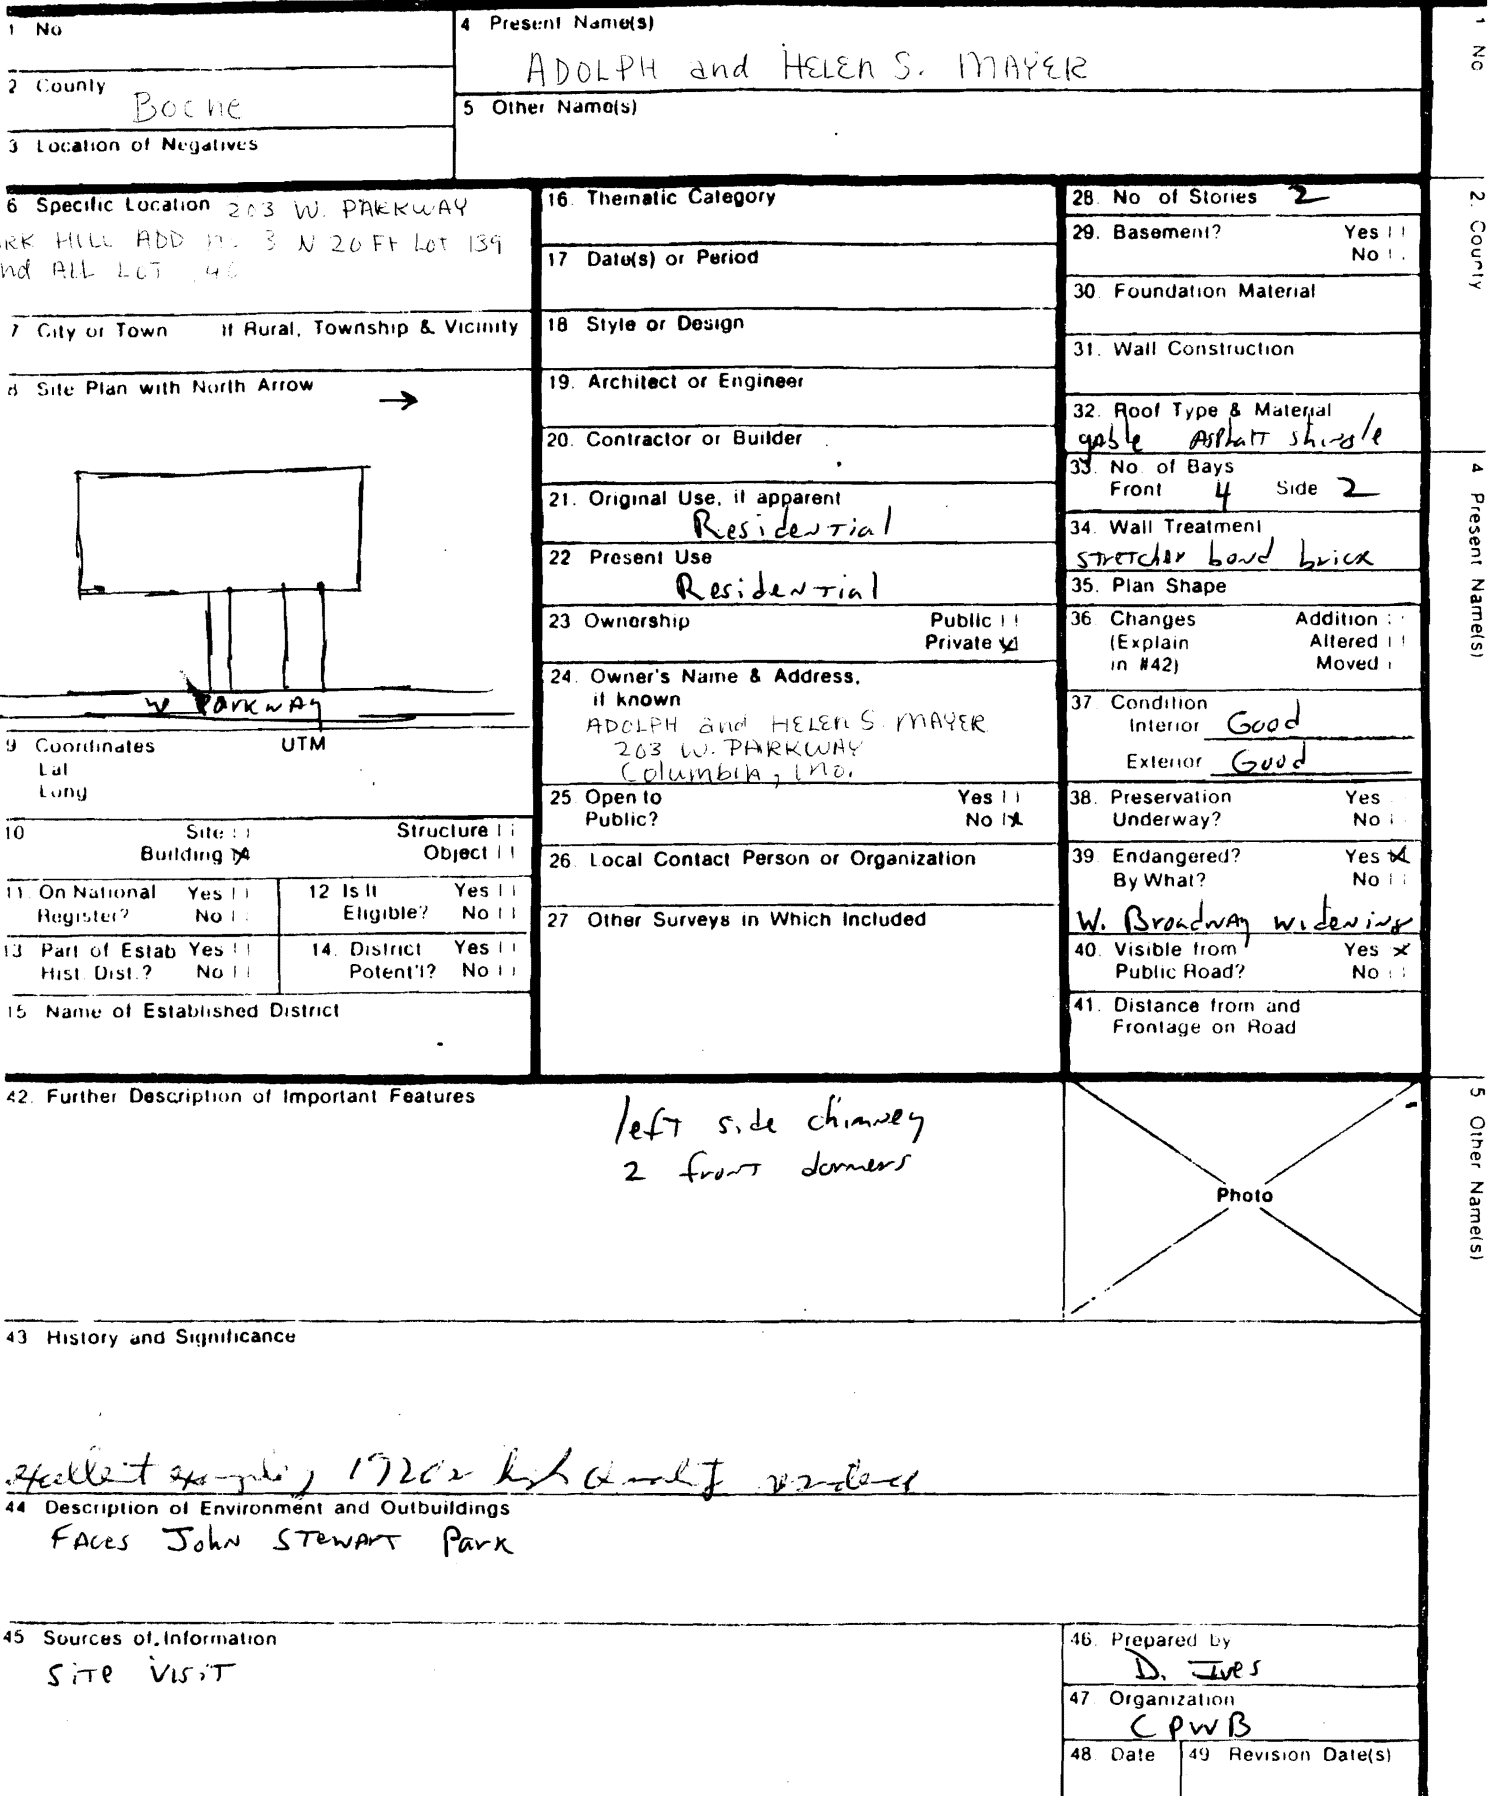 1 No
4 Present Name(s)
ADOLPH and HELEN S. MAYER
2 County
Boone
5 Other Name(s)
3 Location of Negatives
6 Specific Location 203 W. PARKWAY
RK HILL ADD no. 3 N 20 Ft Lot 139
nd ALL LOT
7 City or Town If Rural, Township & Vicinity
8 Site Plan with North Arrow
W PARKWAY
9 Coordinates UTM
Lat
Long
10 Site
Structure
Building
Object
11. On National Register? Yes No
12 Is It Eligible? Yes No
13 Part of Estab Hist. Dist.? Yes No
14. District Potent'l? Yes No
15 Name of Established District
16. Thematic Category
17 Date(s) or Period
18 Style or Design
19. Architect or Engineer
20. Contractor or Builder
21. Original Use, if apparent
Residential
22 Present Use
Residential
23 Ownership Public
Private
24. Owner's Name & Address,
if known
ADOLPH and HELEN S. MAYER
203 W. PARKWAY
Columbia, Mo.
25 Open to Yes
Public? No
26. Local Contact Person or Organization
27 Other Surveys in Which Included
28. No of Stories 2
29. Basement? Yes
No
30. Foundation Material
31. Wall Construction
32. Roof Type & Material
gable Asphalt shingle
33. No. of Bays
Front 4 Side 2
34. Wall Treatment
stretcher bond brick
35. Plan Shape
36. Changes Addition
(Explain Altered
in #42) Moved
37. Condition
Interior Good
Exterior Good
38. Preservation Yes
Underway? No
39. Endangered? Yes
By What? No
W. Broadway widening
40. Visible from Yes
Public Road? No
41. Distance from and
Frontage on Road
42. Further Description of Important Features
left side chimney
2 front dormers
Photo
43 History and Significance
excellent example of 1920s high quality residence
44 Description of Environment and Outbuildings
FACES John STEWART Park
45 Sources of Information
SITE VISIT
46. Prepared by
D. Ives
47 Organization
CPWB
48. Date
49 Revision Date(s)
1 No
2. County
4 Present Name(s)
5 Other Name(s)